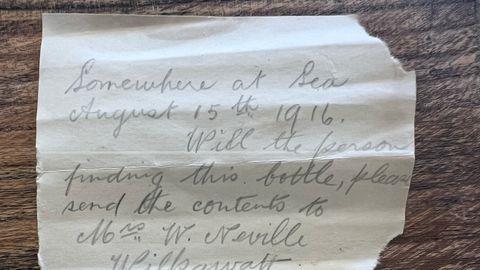 Somewhere at Sea
August 15th 1916.
Will the person
finding this bottle, please
send the contents to
Mrs W. Neville
Wilkawatt